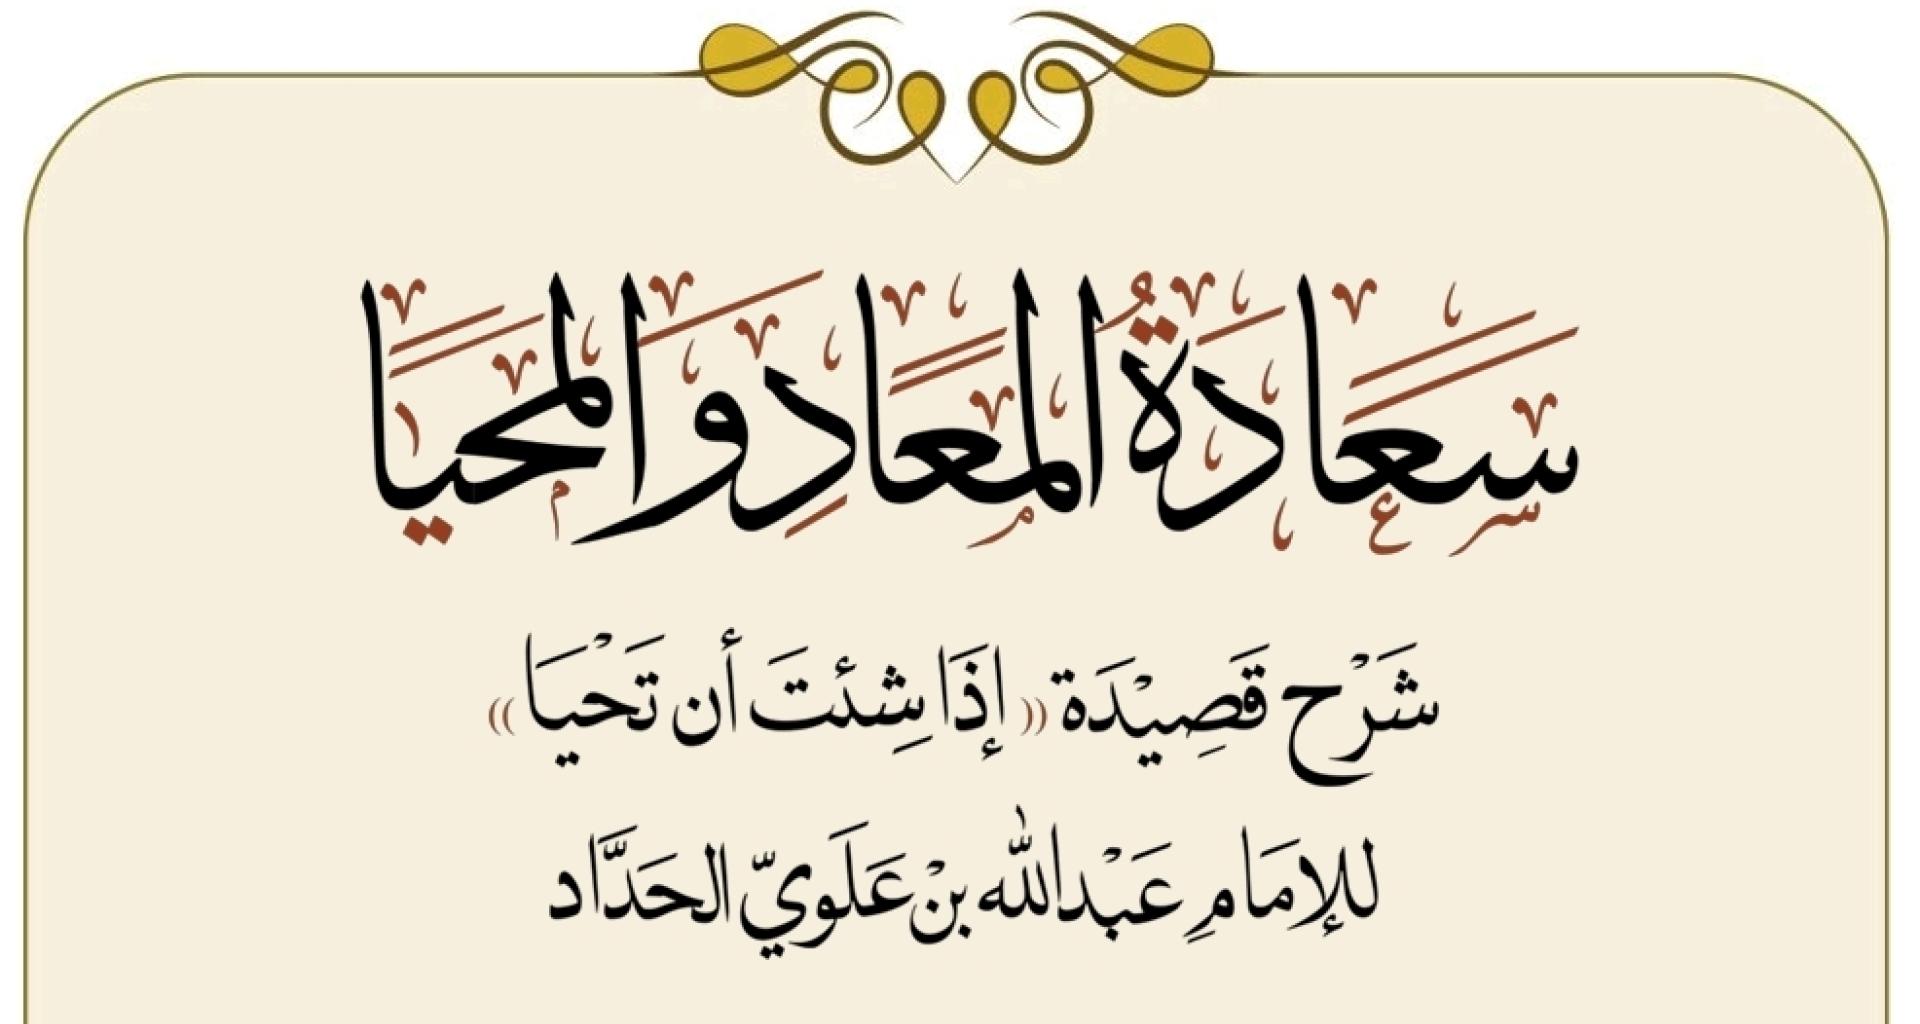 سَعَادَةُ المَعَادِ وَالمحيَا
شَرْح قَصِيْدَة «إِذَا شِئتَ أن تَحْيَا»
للإمَامِ عَبْدالله بنْ عَلَويّ الحَدَّاد